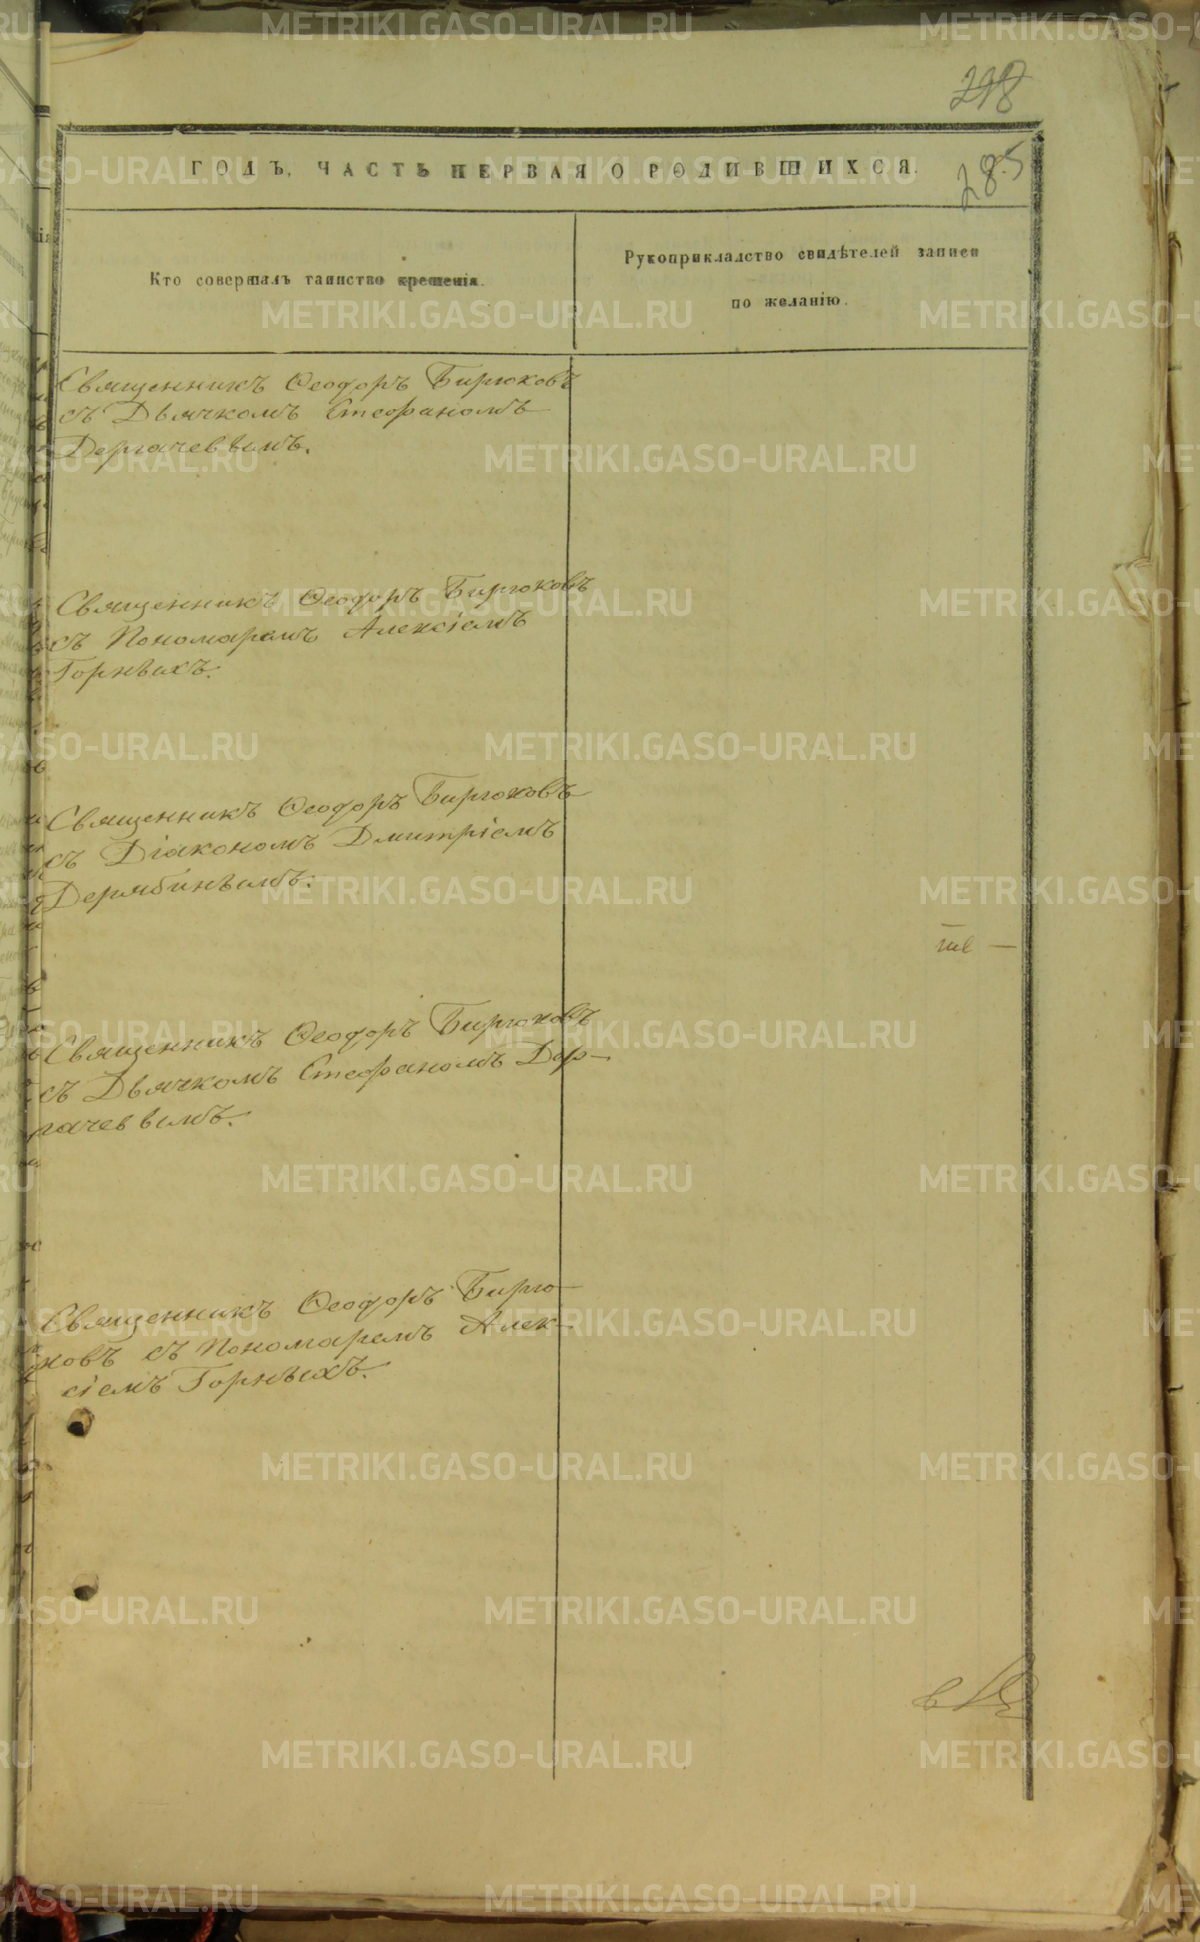 218
285
ГОДЪ, ЧАСТЬ ПЕРВАЯ О РОДИВШИХСЯ.
Кто совершалъ таинство крещенія.
Рукоприкладство свидѣтелей записи
по желанію.
Священникъ Ѳеодоръ Бирюковъ
съ Дьячкомъ Стефаномъ
Дергачеввымъ.
Священникъ Ѳеодоръ Бирюковъ
съ Пономаремъ Алексіемъ
Горныхъ.
Священникъ Ѳеодоръ Бирюковъ
съ Діакономъ Дмитріемъ
Дерябинымъ.
Священникъ Ѳеодоръ Бирюковъ
съ Дьячкомъ Стефаномъ Дер-
гачеввымъ.
Священникъ Ѳеодоръ Бирю-
ковъ съ Пономаремъ Алек-
сіемъ Горныхъ.
METRIKI.GASO-URAL.RU